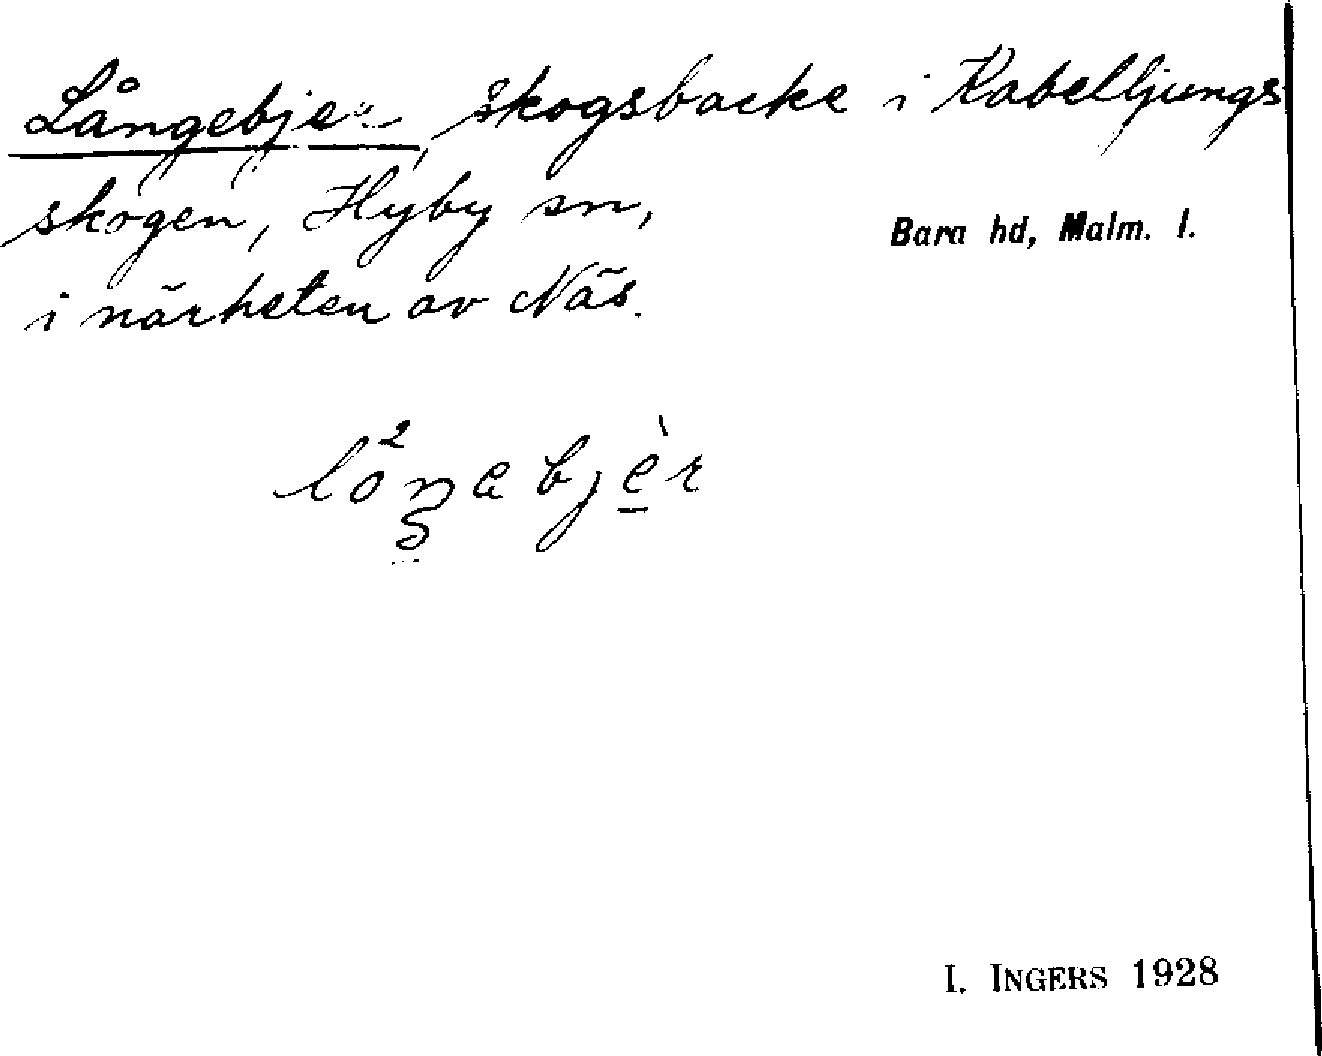 Långebjer, skogsbacke i Kabelljungs
skogen, Hyby sn,
Bara hd, Malm. l.
i närheten av Näs.
I. INGERS 1928